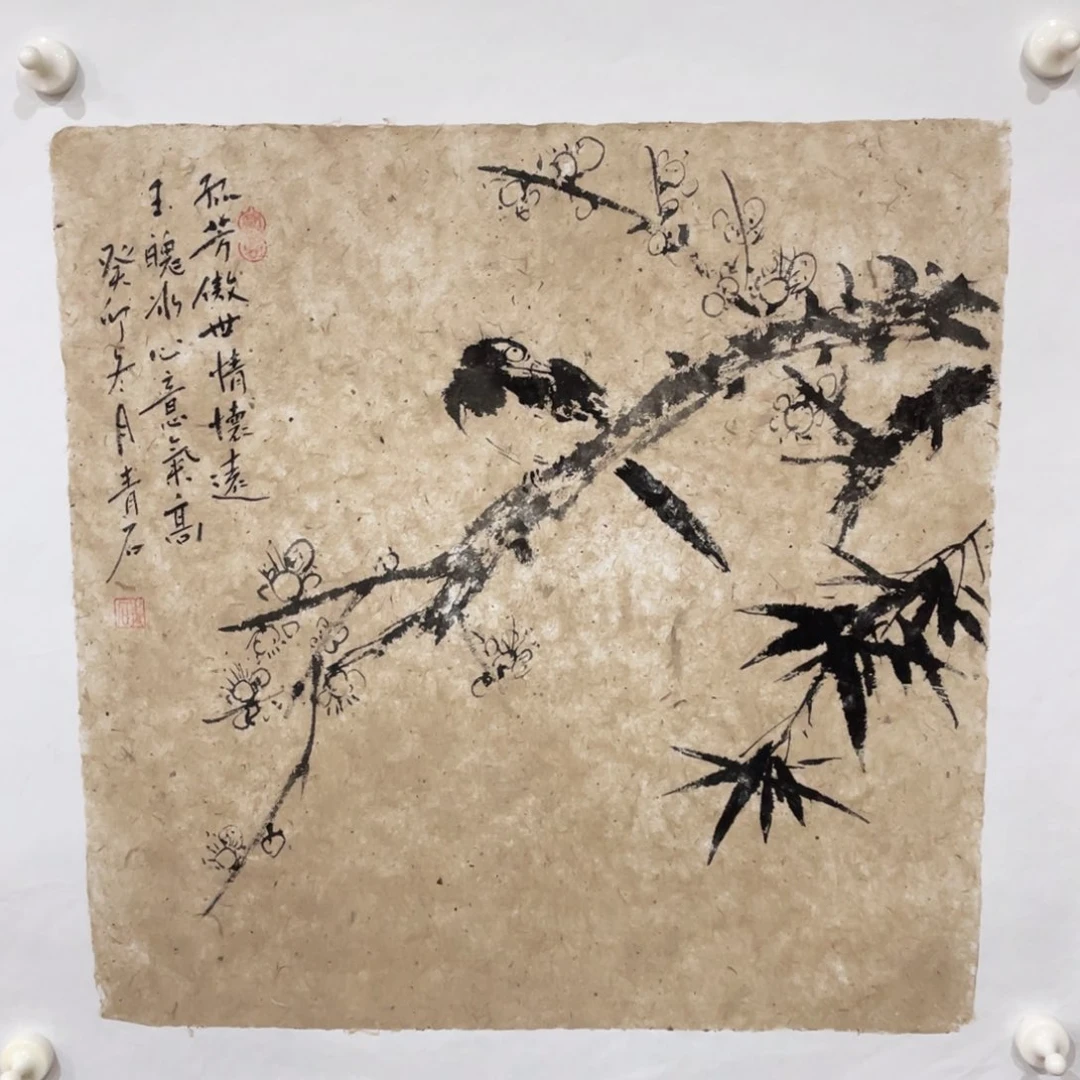 孤芳傲世情懷遠
玉魄冰心意氣高
癸卯冬月青石